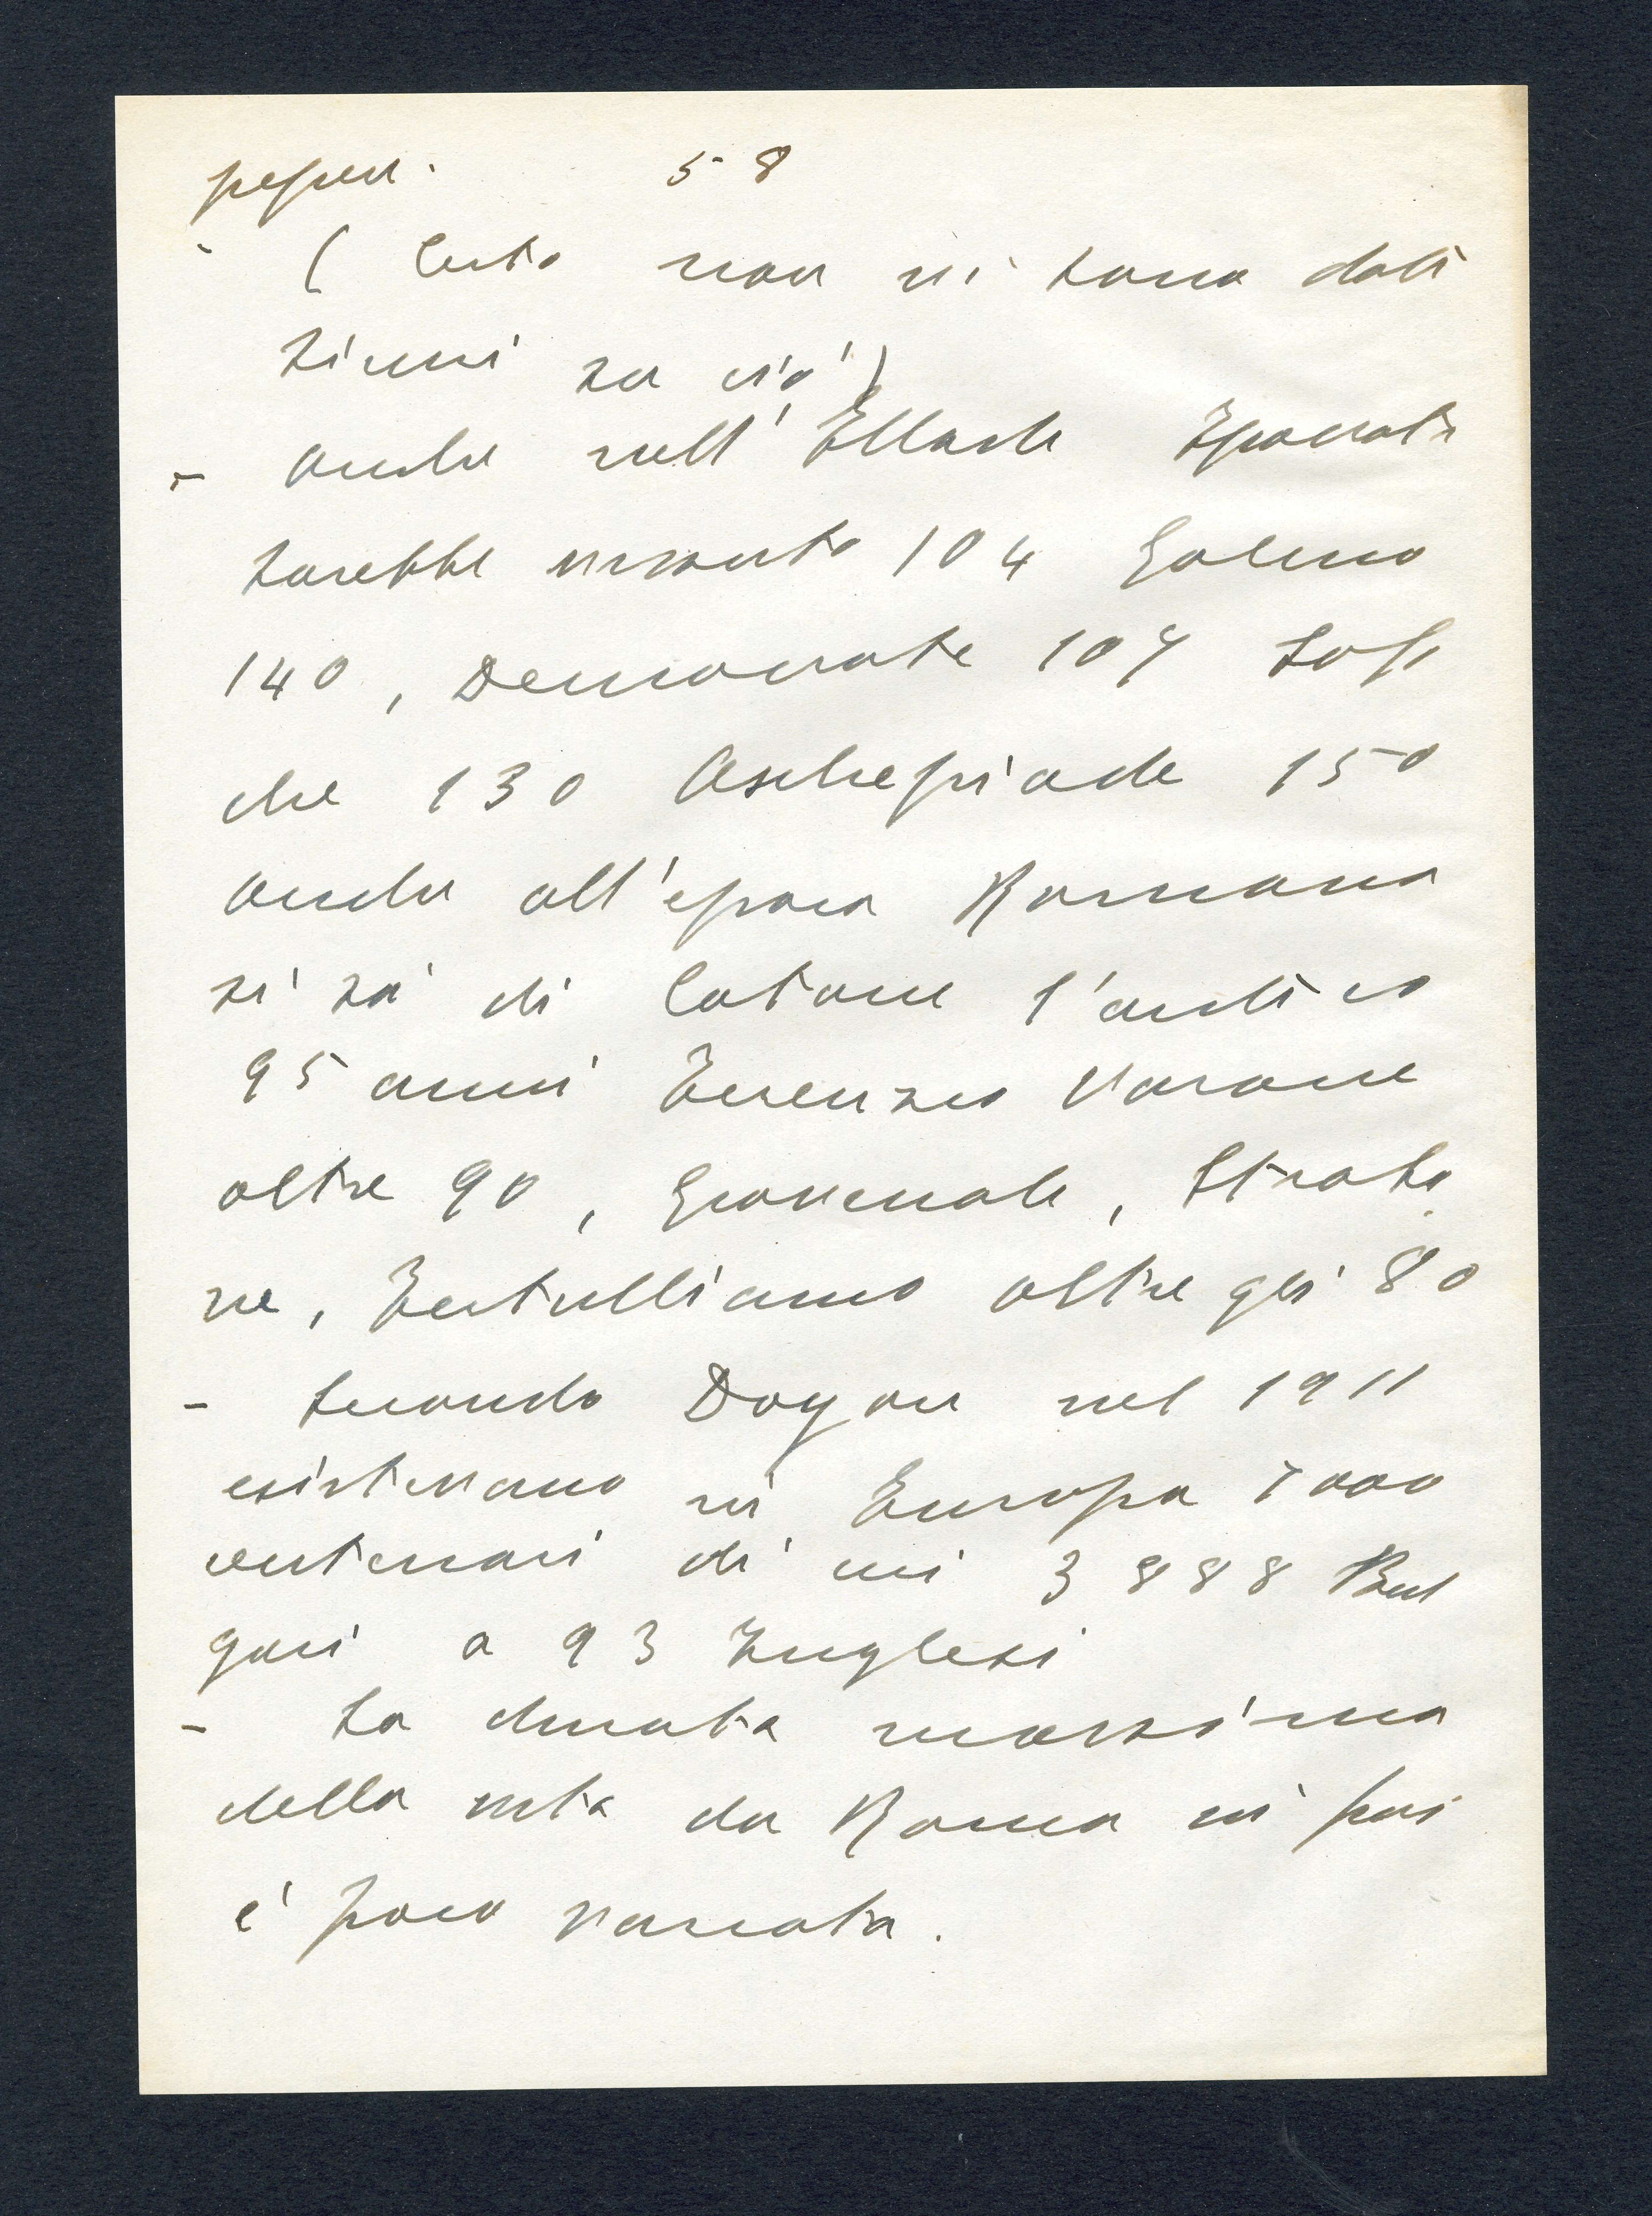 58
- ( Certo non vi sono dati
sicuri su ciò )
- anche nell' Ellade Ipocrate
sarebbe vissuto 104 Galeno
140, Democrate 107 Sofo
cle 130 Aschepiade 150
anche all'epoca Romana
si sa di Catone l'antico
95 anni Terenzio Varone
oltre 90, Giovenale, Strabo
ne, Tertulliano oltre gli 80
- secondo Dogan nel 1911
esistevano in Europa 7000
centenari di cui 3888 Bul
gari a 93 Inglesi
- La durata massima
della vita da Roma in poi
e' poco variata.